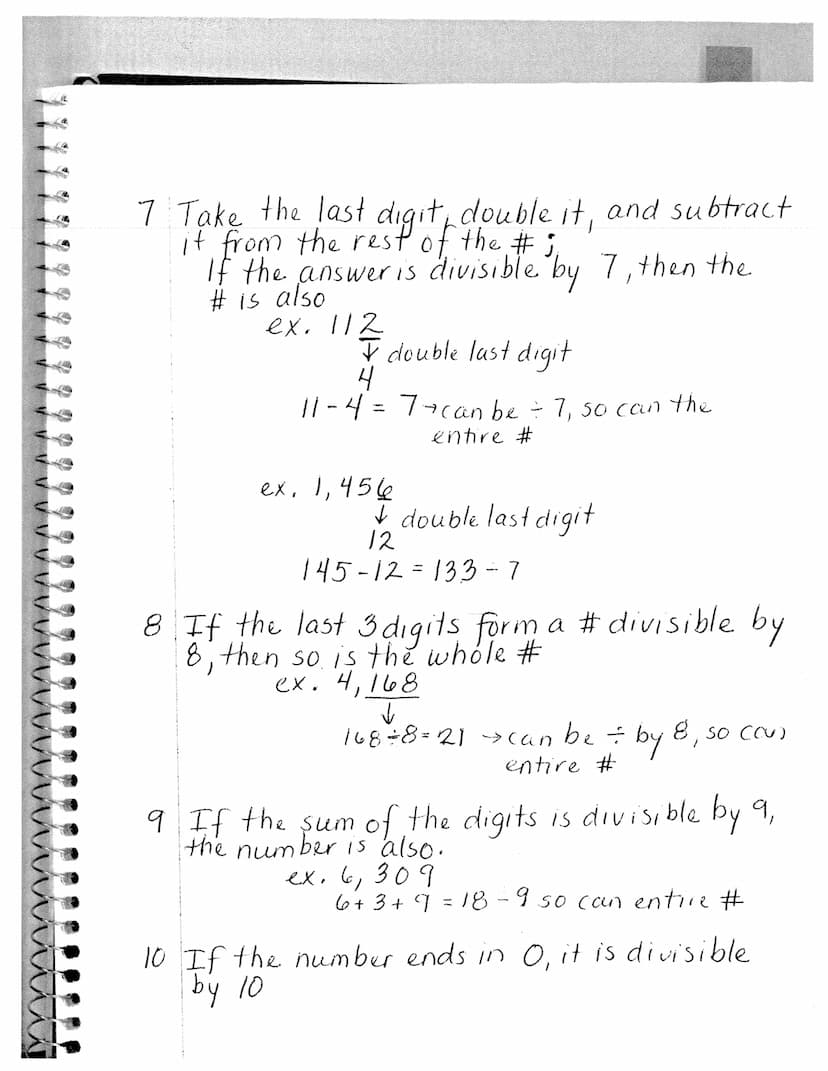 7 Take the last digit, double it, and subtract
it from the rest of the # ;
If the answer is divisible by 7, then the
# is also
ex. 112
↓ double last digit
4
11 - 4 = 7 → can be ÷ 7, so can the
entire #
ex. 1,456
↓ double last digit
12
145 - 12 = 133 ÷ 7
8 If the last 3 digits form a # divisible by
8, then so is the whole #
ex. 4,168
↓
168 ÷ 8 = 21 → can be ÷ by 8, so can
entire #
9 If the sum of the digits is divisible by 9,
the number is also.
ex. 6,309
6 + 3 + 9 = 18 ÷ 9 so can entire #
10 If the number ends in 0, it is divisible
by 10